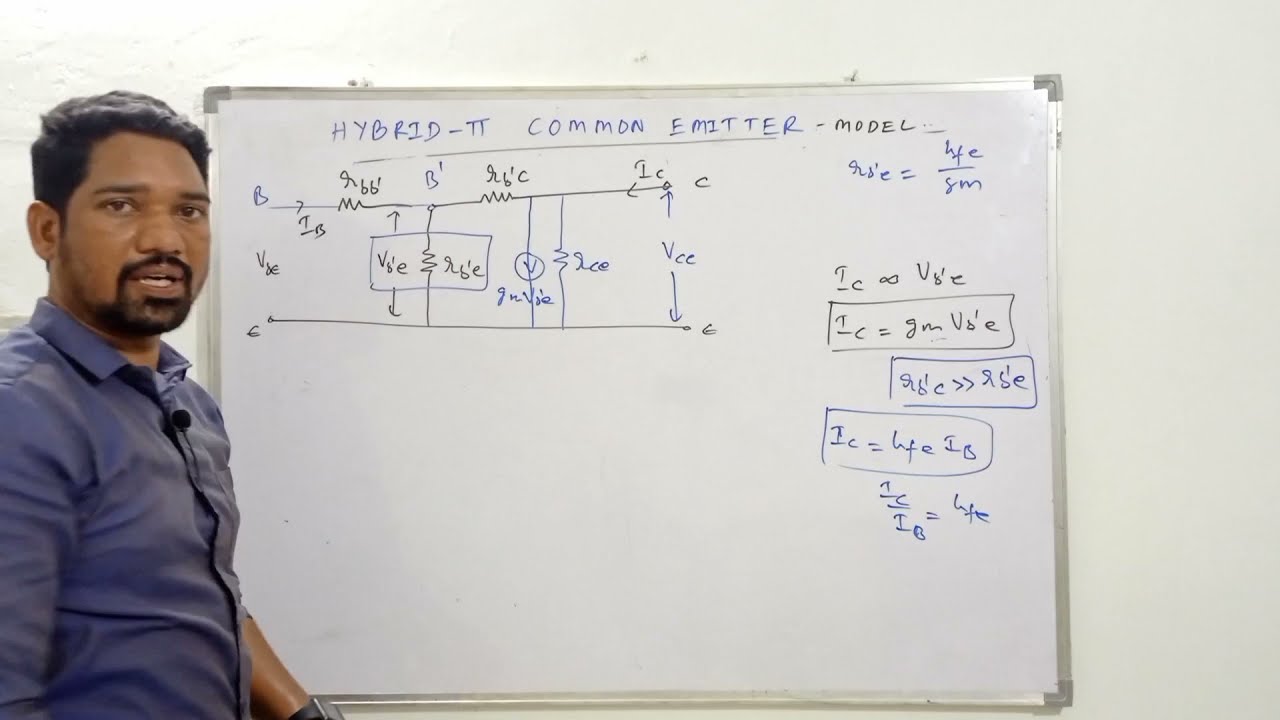 HYBRID-π COMMON EMITTER - MODEL
rb'e = hfe / gm
B IB rbb' B' rb'c Ic C
Vbe Vb'e rb'e gmVb'e rce Vce
E E
Ic ∝ Vb'e
Ic = gm Vb'e
rb'c >> rb'e
Ic = hfe IB
Ic / IB = hfe